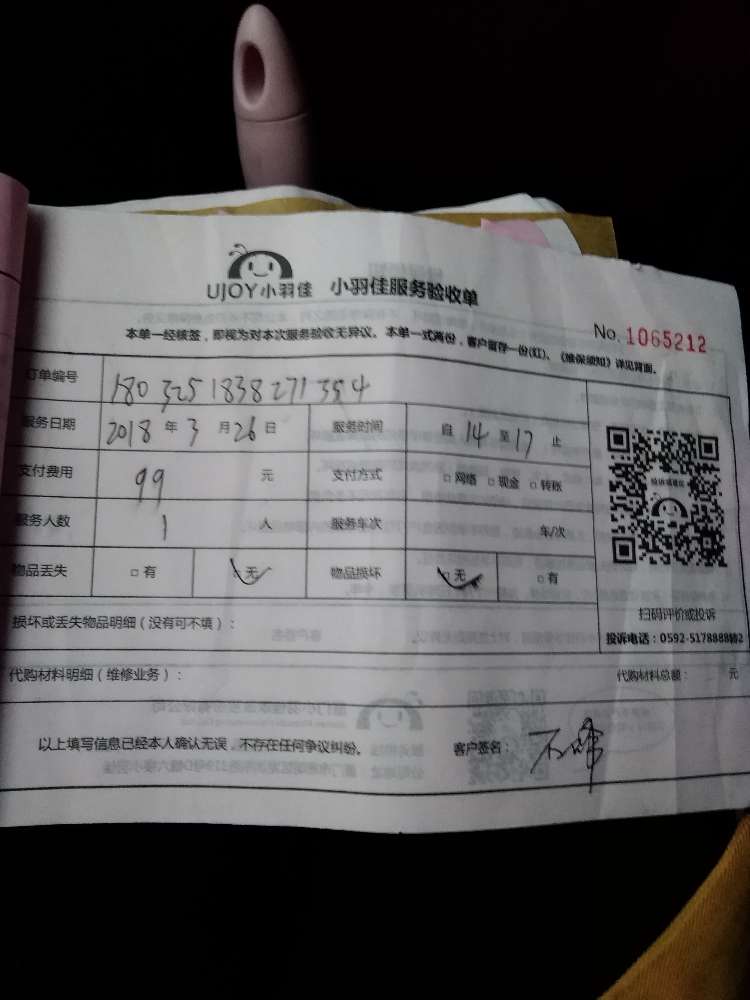 UJOY小羽佳 小羽佳服务验收单
No. 1065212
本单一经核签，即视为对本次服务验收无异议。本单一式两份，客户留存一份(红)、《维保须知》详见背面。
订单编号 1803251838271354
服务日期 2018 年 3 月 26 日 服务时间 自 14 至 17 止
支付费用 99 元 支付方式 □ 网络 □ 现金 □ 转账
服务人数 1 人 服务车次 车/次
物品丢失 □ 有 □ 无 物品损坏 □ 无 □ 有
扫码评价或投诉
投诉电话：0592-5178888转2
损坏或丢失物品明细（没有可不填）：
代购材料明细（维修业务）： 代购材料总额： 元
以上填写信息已经本人确认无误，不存在任何争议纠纷。 客户签名：